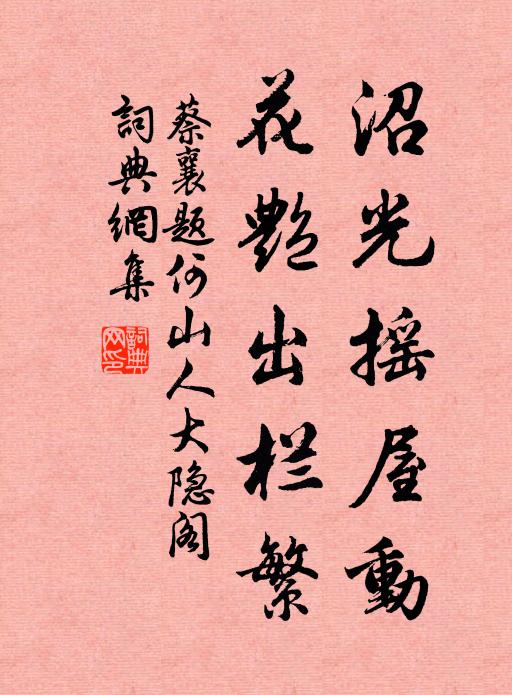 沼光摇屋動
花艷出栏繁
蔡襄题何山人大隐阁
詞典網集
詞典
网印